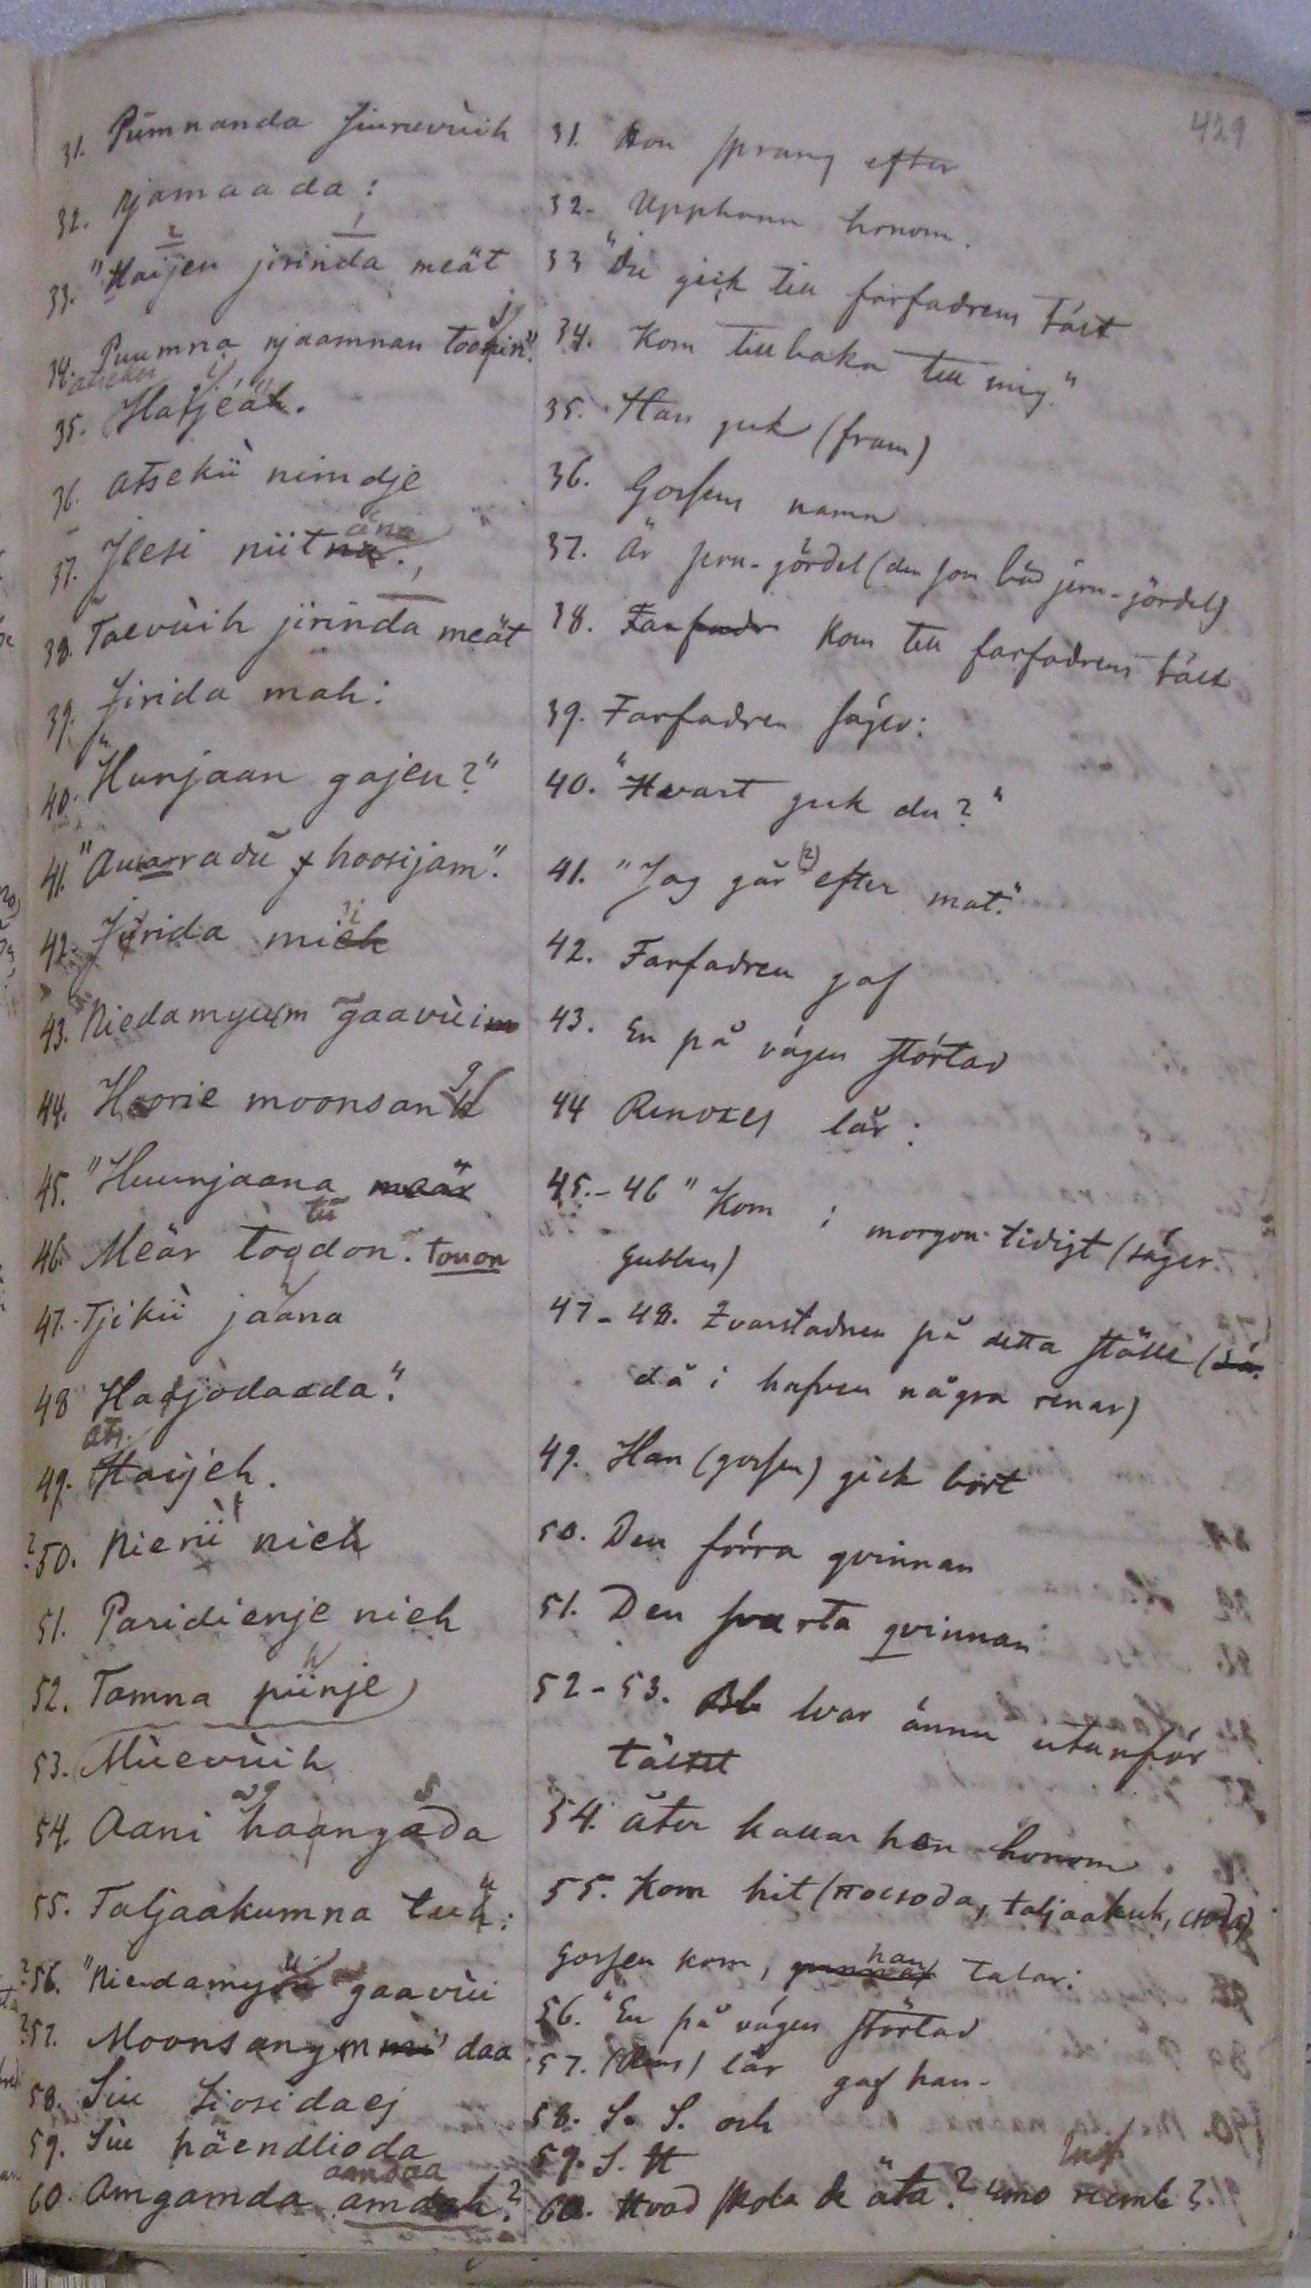 429
31. Pümnanda Jiuruvùih
32. njamaada:
33. "Haijen jirinda meät
34. Puumna njaamnan
35. Hatjeäh.
36. atsekü nimdje
37. Jeesi niitna.
38. Taevùih jirinda meät
39. Jirida mah:
40. "Hunjaan gajen?"
41. hoosijam".
42. Jirida
43. Niedamyum gaavùim
44. Hoorie moonsan
45. "Huunjaana
46. Meär togdon. touon
47. Tjikü jaana
48 Hatjodadda".
49. Haijeh.
?50. Nierii nieh
51. Paridienje nieh
52. Tamna piinje
53. Mùevùih
54. Aani
55. Taljaakumna tuh:
?56. gaavùi
?57. daa
58. Siu Siosidaej
59. Siu häendlioda
60. Amgamda aandaa
31. Hon sprang efter
32. Upphann honom.
33 "Du gick till farfadrens tält
34. Kom tillbaka till mig."
35. Han gick (fram)
36. Gossens namn
37. Är jern-gördel (den som bär jern-gördel)
38. Farfadr Kom till farfadrens tält
39. Farfadren säger:
40. "Hvart gick du?"
41. "Jag går (2) efter mat."
42. Farfadren gaf
43. En på vägen störtad
44 Renoxes lår:
45.-46 "Kom i morgon tidigt (säger
gubben)
47-48. Qvarstadnen på detta ställe (så
då i hafven några renar)
49. Han (gossen) gick bort
50. Den förra qvinnan
51. Den svarta qvinnan
52-53. var ännu utanför
tältet
54. åter kallar hon honom.
55. Kom hit (
Gossen kom, han talar:
56. "En på vägen störtad
57. lår gaf han.
58. S. S. och
59. S. H
60. Hvad skola de äta?